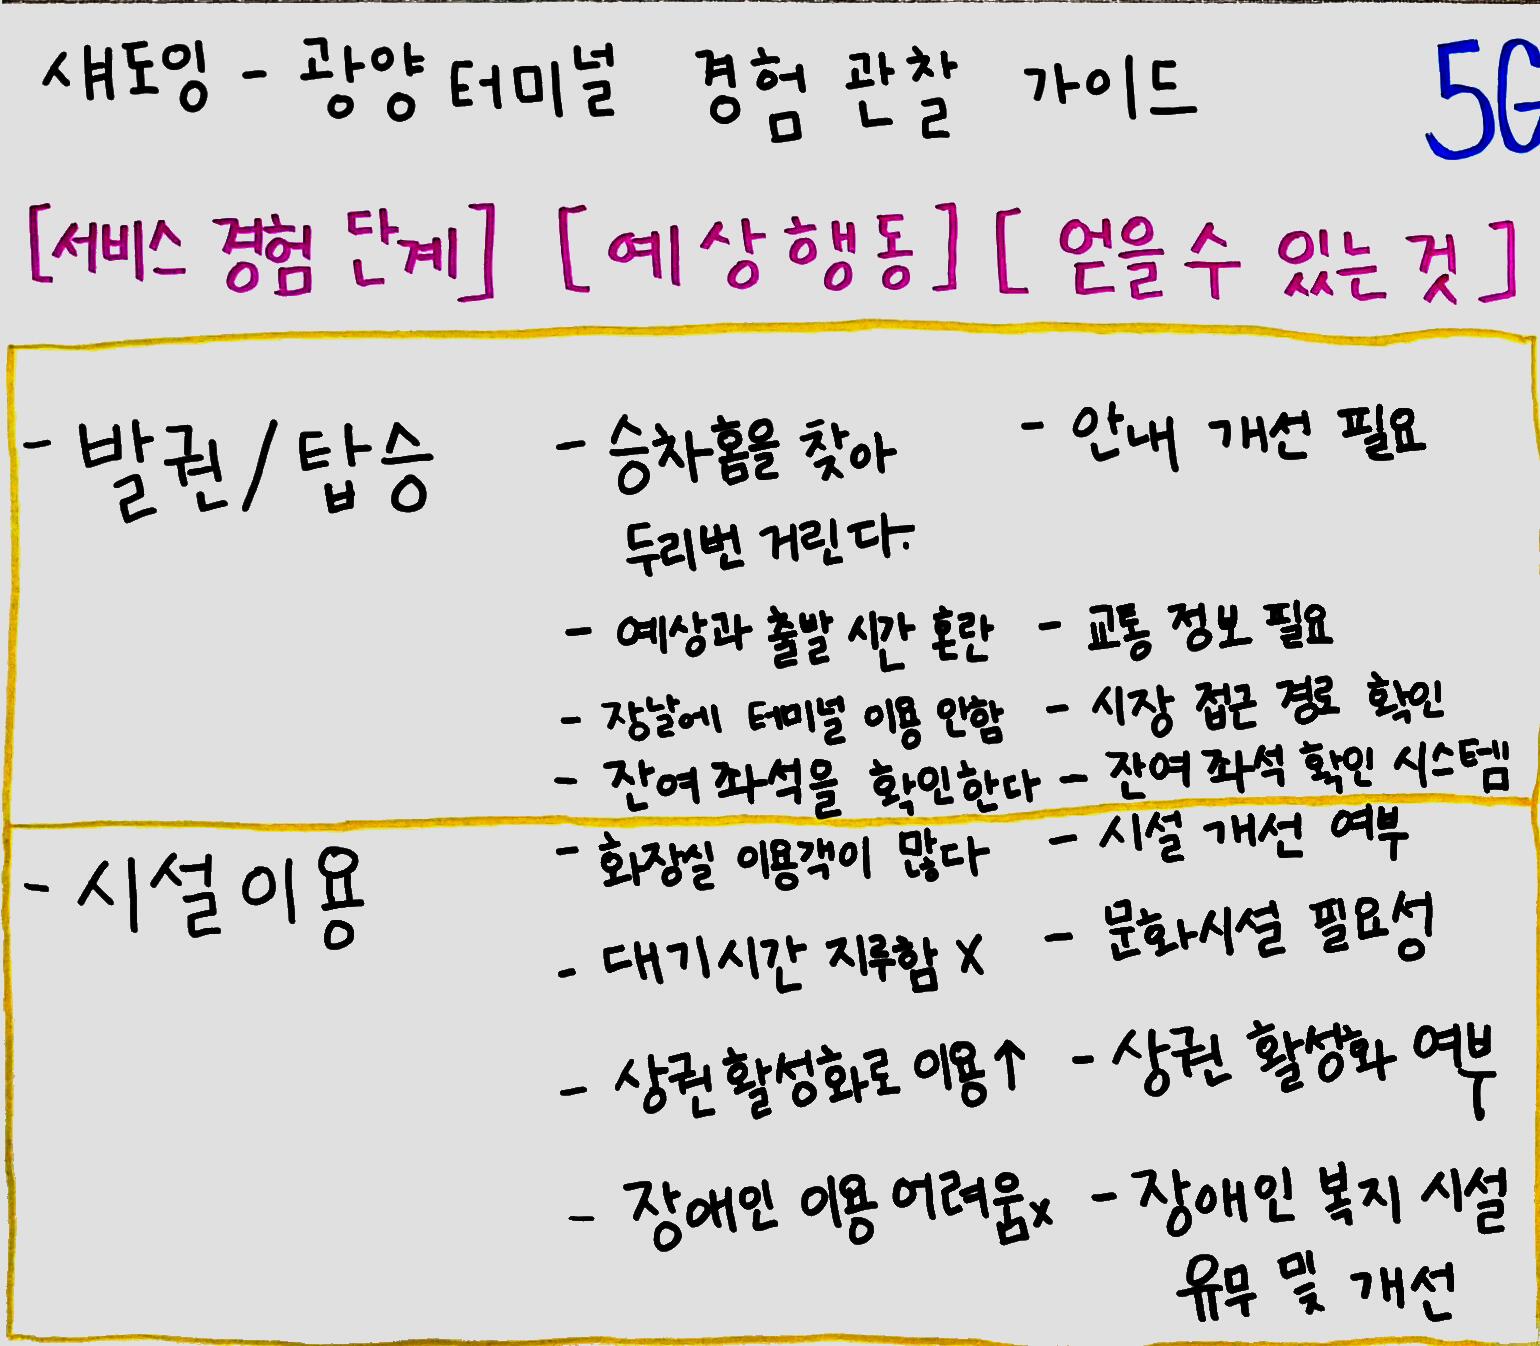 섀도잉 - 광양터미널 경험 관찰 가이드 5G
[서비스 경험 단계] [예상행동] [얻을 수 있는 것]
- 발권/탑승 - 승차홈을 찾아 - 안내 개선 필요
두리번 거린다.
- 예상과 출발 시간 혼란 - 교통 정보 필요
- 장날에 터미널 이용 안함 - 시장 접근 경로 확인
- 잔여 좌석을 확인한다 - 잔여 좌석 확인 시스템
- 시설이용 - 화장실 이용객이 많다 - 시설 개선 여부
- 대기시간 지루함 X - 문화시설 필요성
- 상권활성화로 이용↑ - 상권 활성화 여부
- 장애인 이용 어려움x - 장애인 복지 시설
유무 및 개선